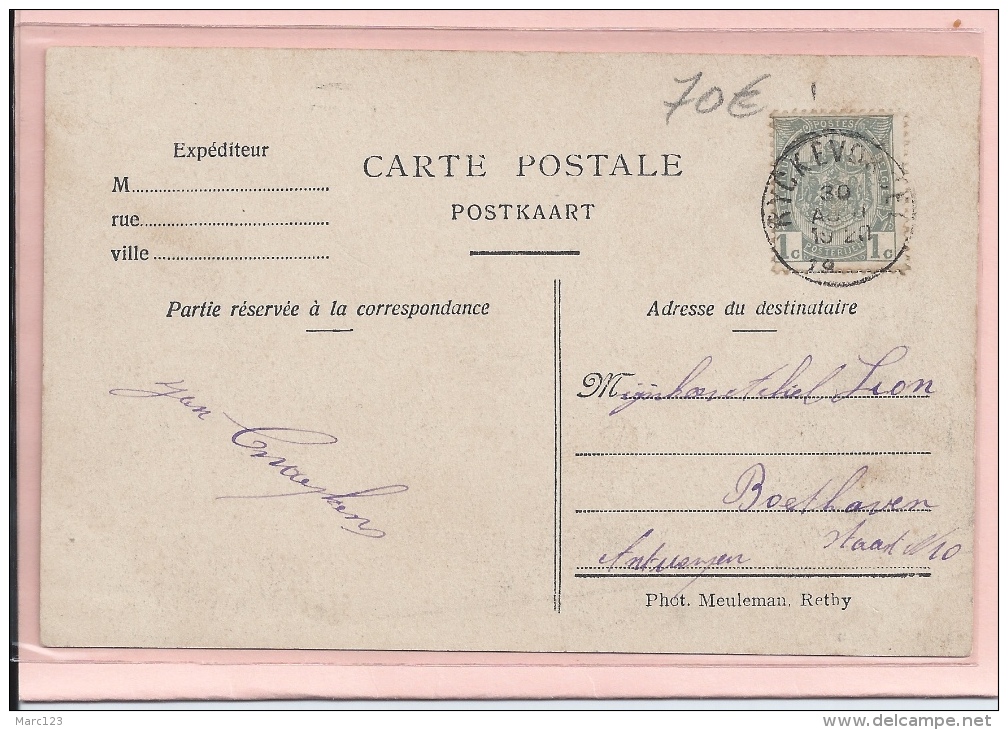 70€
Expéditeur
M
rue
ville
CARTE POSTALE
POSTKAART
POSTES
RYCKEVORSEL
30
19 20
19
1c 1c
POSTERIJEN
Partie réservée à la correspondance
Adresse du destinataire
Jan
M Lion
Boethaven
staat N 10
Antwerpen
Phot. Meuleman, Rethy
Marc123
www.delcampe.net